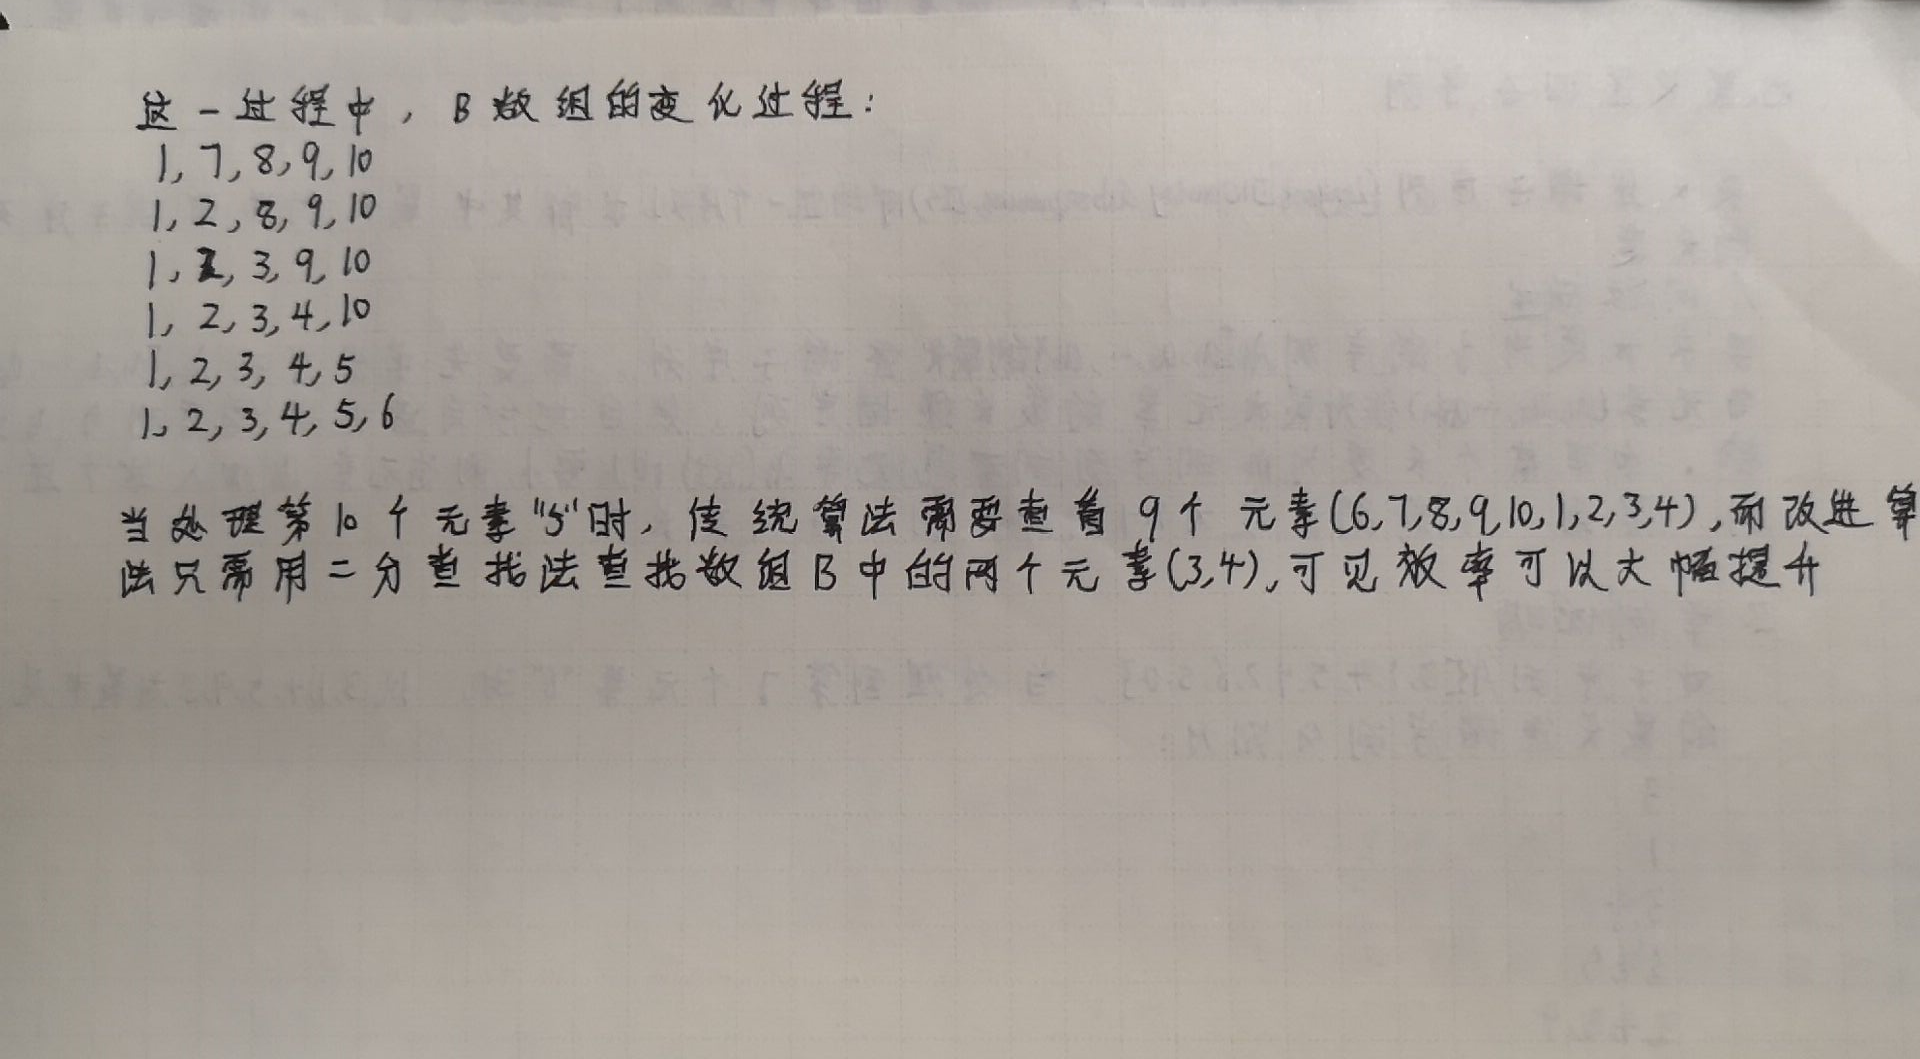 这一过程中，B数组的变化过程：
1,7,8,9,10
1,2,8,9,10
1,2,3,9,10
1,2,3,4,10
1,2,3,4,5
1,2,3,4,5,6
当处理第10个元素"5"时，传统算法需要查看9个元素(6,7,8,9,10,1,2,3,4),而改进算
法只需用二分查找法查找数组B中的两个元素(3,4),可见效率可以大幅提升